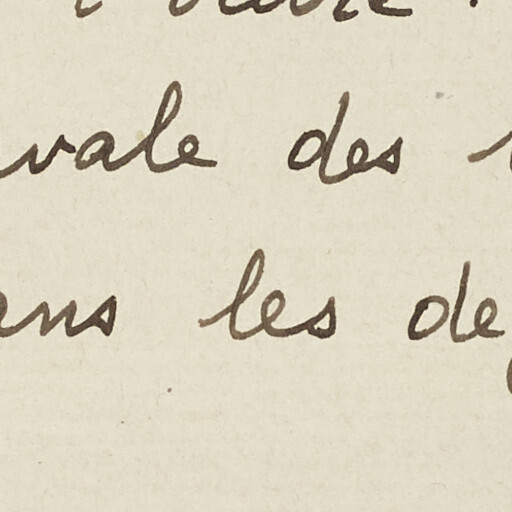 vale des
ans les de